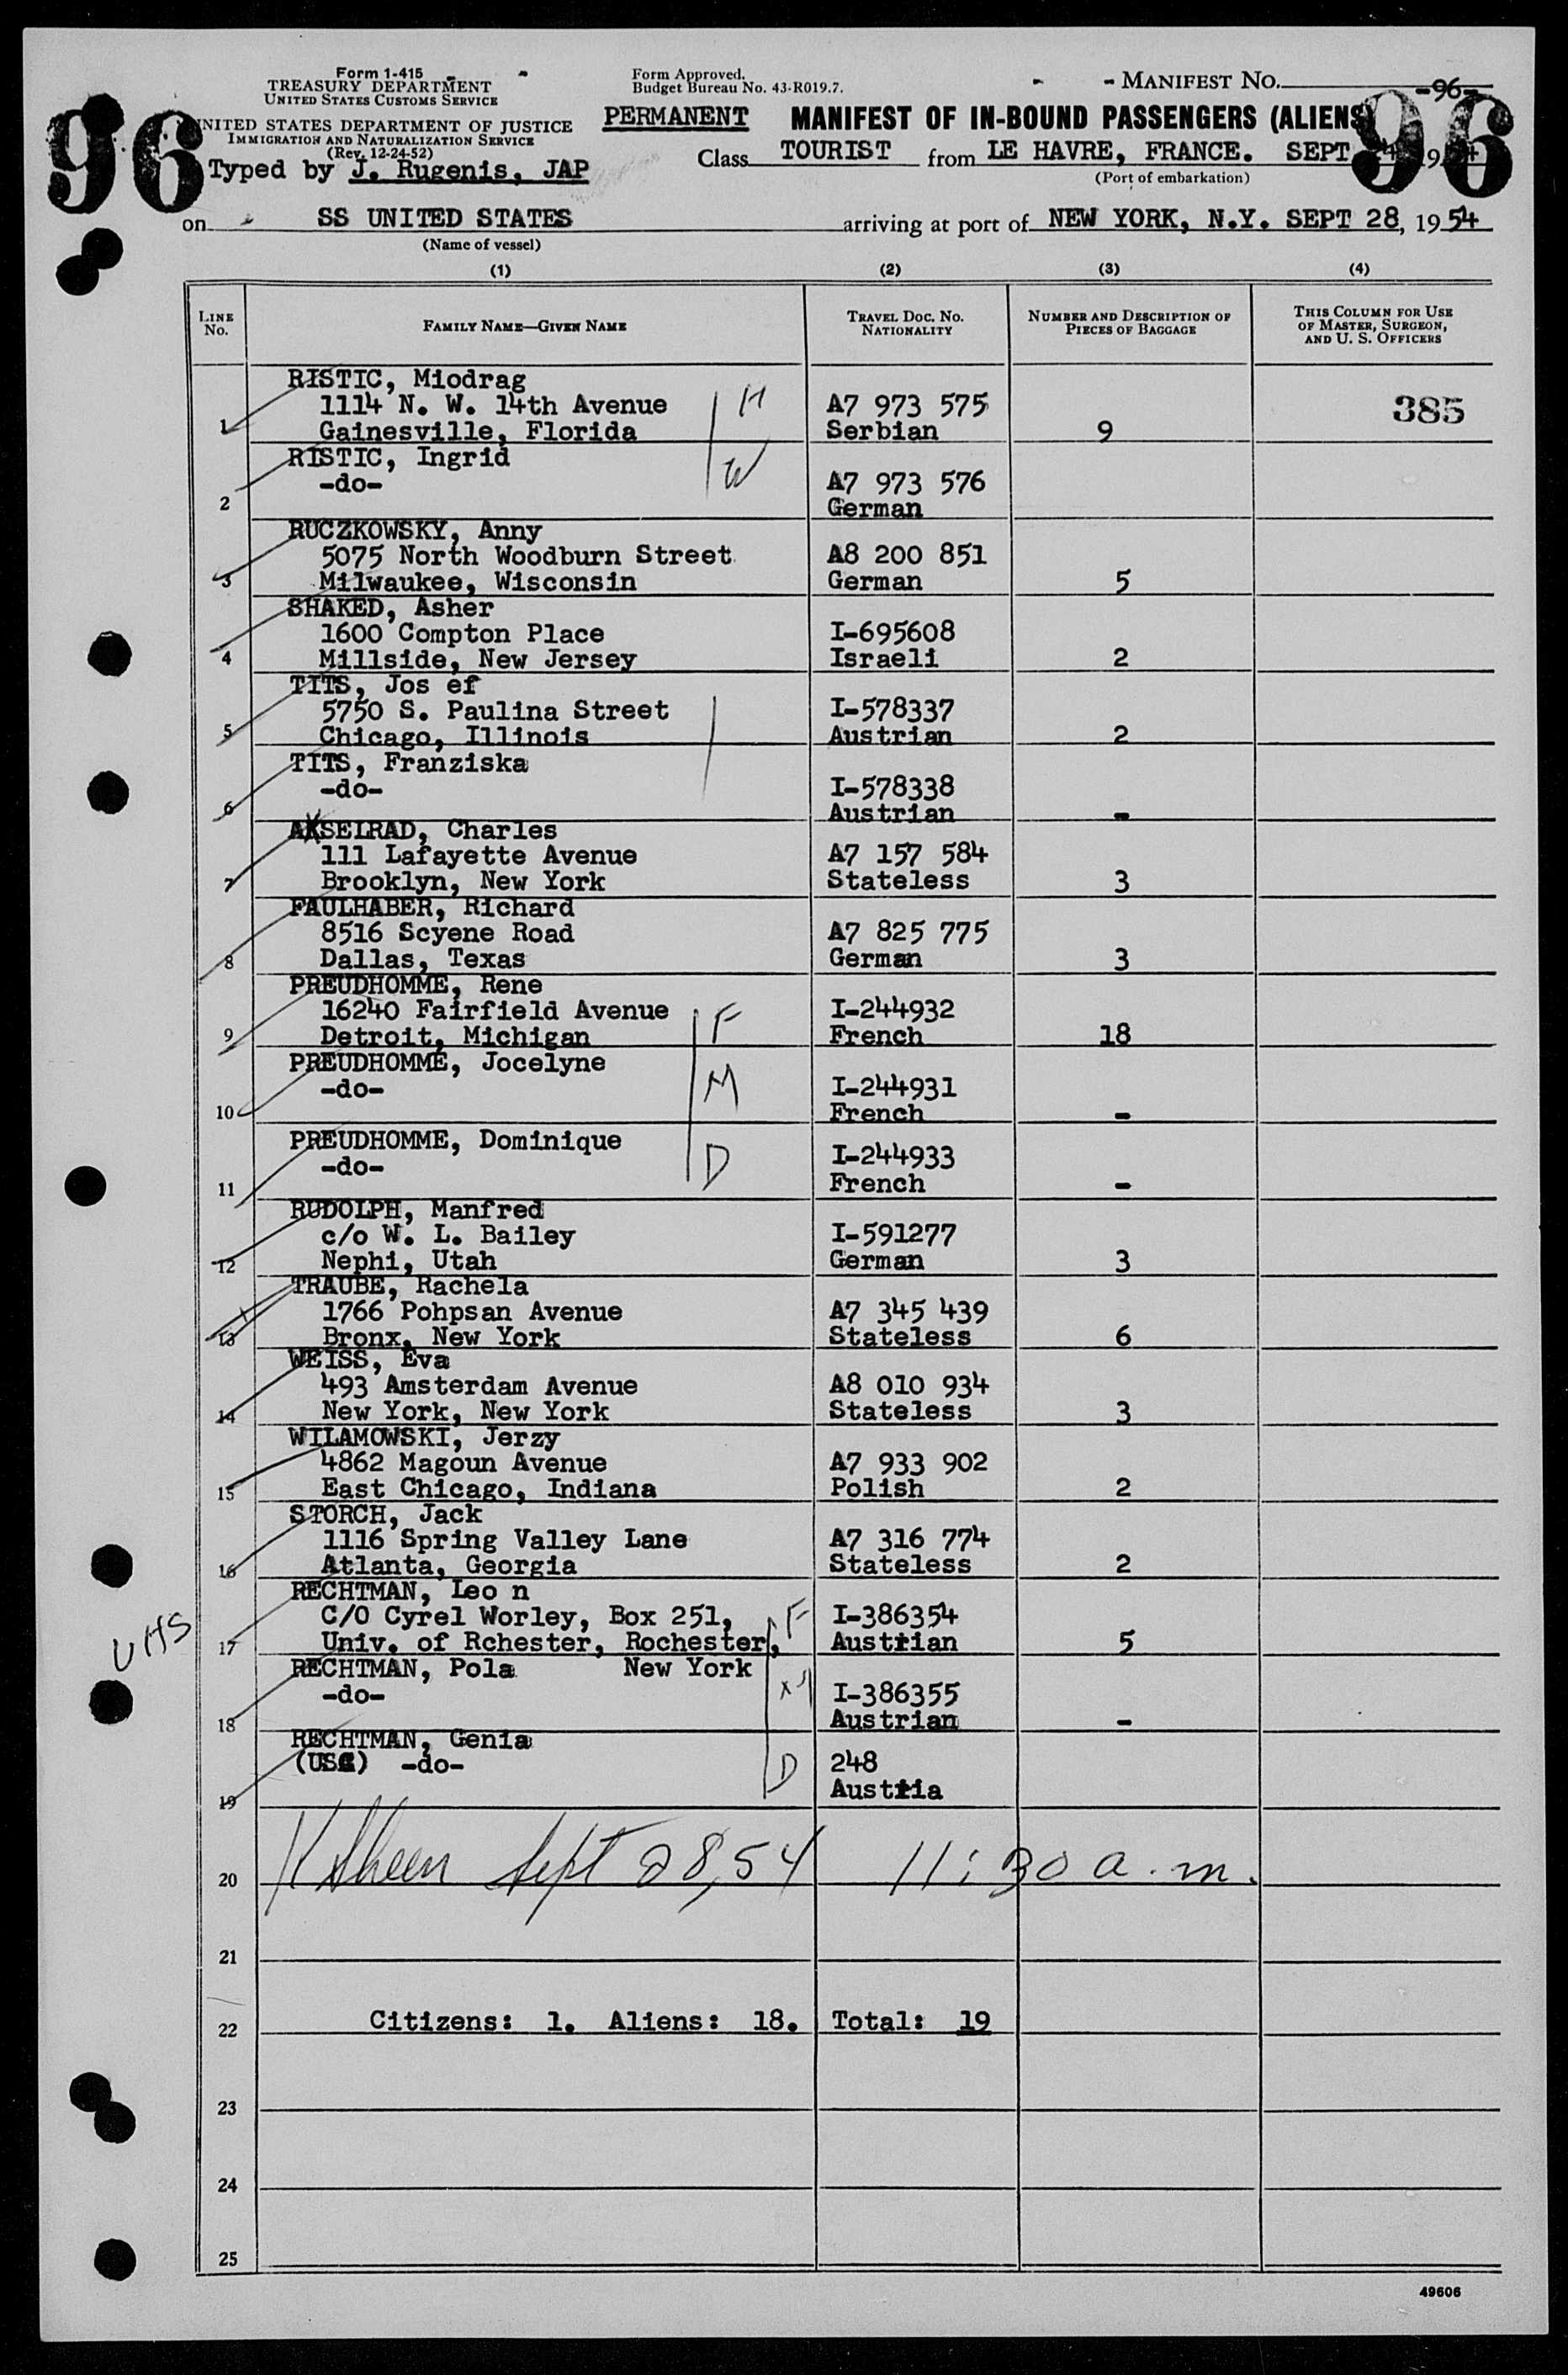 Form 1-415
TREASURY DEPARTMENT
UNITED STATES CUSTOMS SERVICE
UNITED STATES DEPARTMENT OF JUSTICE
IMMIGRATION AND NATURALIZATION SERVICE
(Rev. 12-24-52)
Typed by J. Rugenis, JAP
Form Approved.
Budget Bureau No. 43-R019.7.
MANIFEST No. -96-
96
96
PERMANENT MANIFEST OF IN-BOUND PASSENGERS (ALIENS)
Class TOURIST from LE HAVRE, FRANCE. SEPT
(Port of embarkation)
on SS UNITED STATES arriving at port of NEW YORK, N.Y. SEPT 28, 1954
(Name of vessel)
(1) (2) (3) (4)
LINE No. FAMILY NAME—GIVEN NAME TRAVEL DOC. NO. NATIONALITY NUMBER AND DESCRIPTION OF PIECES OF BAGGAGE THIS COLUMN FOR USE OF MASTER, SURGEON, AND U. S. OFFICERS
RISTIC, Miodrag
1114 N. W. 14th Avenue H A7 973 575 385
1 Gainesville, Florida Serbian 9
RISTIC, Ingrid
-do- W A7 973 576
2 German
RUCZKOWSKY, Anny
5075 North Woodburn Street A8 200 851
3 Milwaukee, Wisconsin German 5
SHAKED, Asher
1600 Compton Place I-695608
4 Millside, New Jersey Israeli 2
TITS, Jos ef
5750 S. Paulina Street I-578337
5 Chicago, Illinois Austrian 2
TITS, Franziska
-do- I-578338
6 Austrian -
AKSELRAD, Charles
111 Lafayette Avenue A7 157 584
7 Brooklyn, New York Stateless 3
FAULHABER, Richard
8516 Scyene Road A7 825 775
8 Dallas, Texas German 3
PREUDHOMME, Rene
16240 Fairfield Avenue F I-244932
9 Detroit, Michigan French 18
PREUDHOMME, Jocelyne
-do- M I-244931
10 French -
PREUDHOMME, Dominique
-do- D I-244933
11 French -
RUDOLPH, Manfred
c/o W. L. Bailey I-591277
12 Nephi, Utah German 3
TRAUBE, Rachela
1766 Pohpsan Avenue A7 345 439
13 Bronx, New York Stateless 6
WEISS, Eva
493 Amsterdam Avenue A8 010 934
14 New York, New York Stateless 3
WILAMOWSKI, Jerzy
4862 Magoun Avenue A7 933 902
15 East Chicago, Indiana Polish 2
STORCH, Jack
1116 Spring Valley Lane A7 316 774
16 Atlanta, Georgia Stateless 2
RECHTMAN, Leo n
C/O Cyrel Worley, Box 251, F I-386354
UHS 17 Univ. of Rchester, Rochester, Austrian 5
RECHTMAN, Pola New York
-do- I-386355
18 Austrian -
RECHTMAN, Genia
(USC) -do- D 248
19 Austria
20 Sheen Sept 28, 54 11:30 a.m.
21
22 Citizens: 1. Aliens: 18. Total: 19
23
24
25
49606